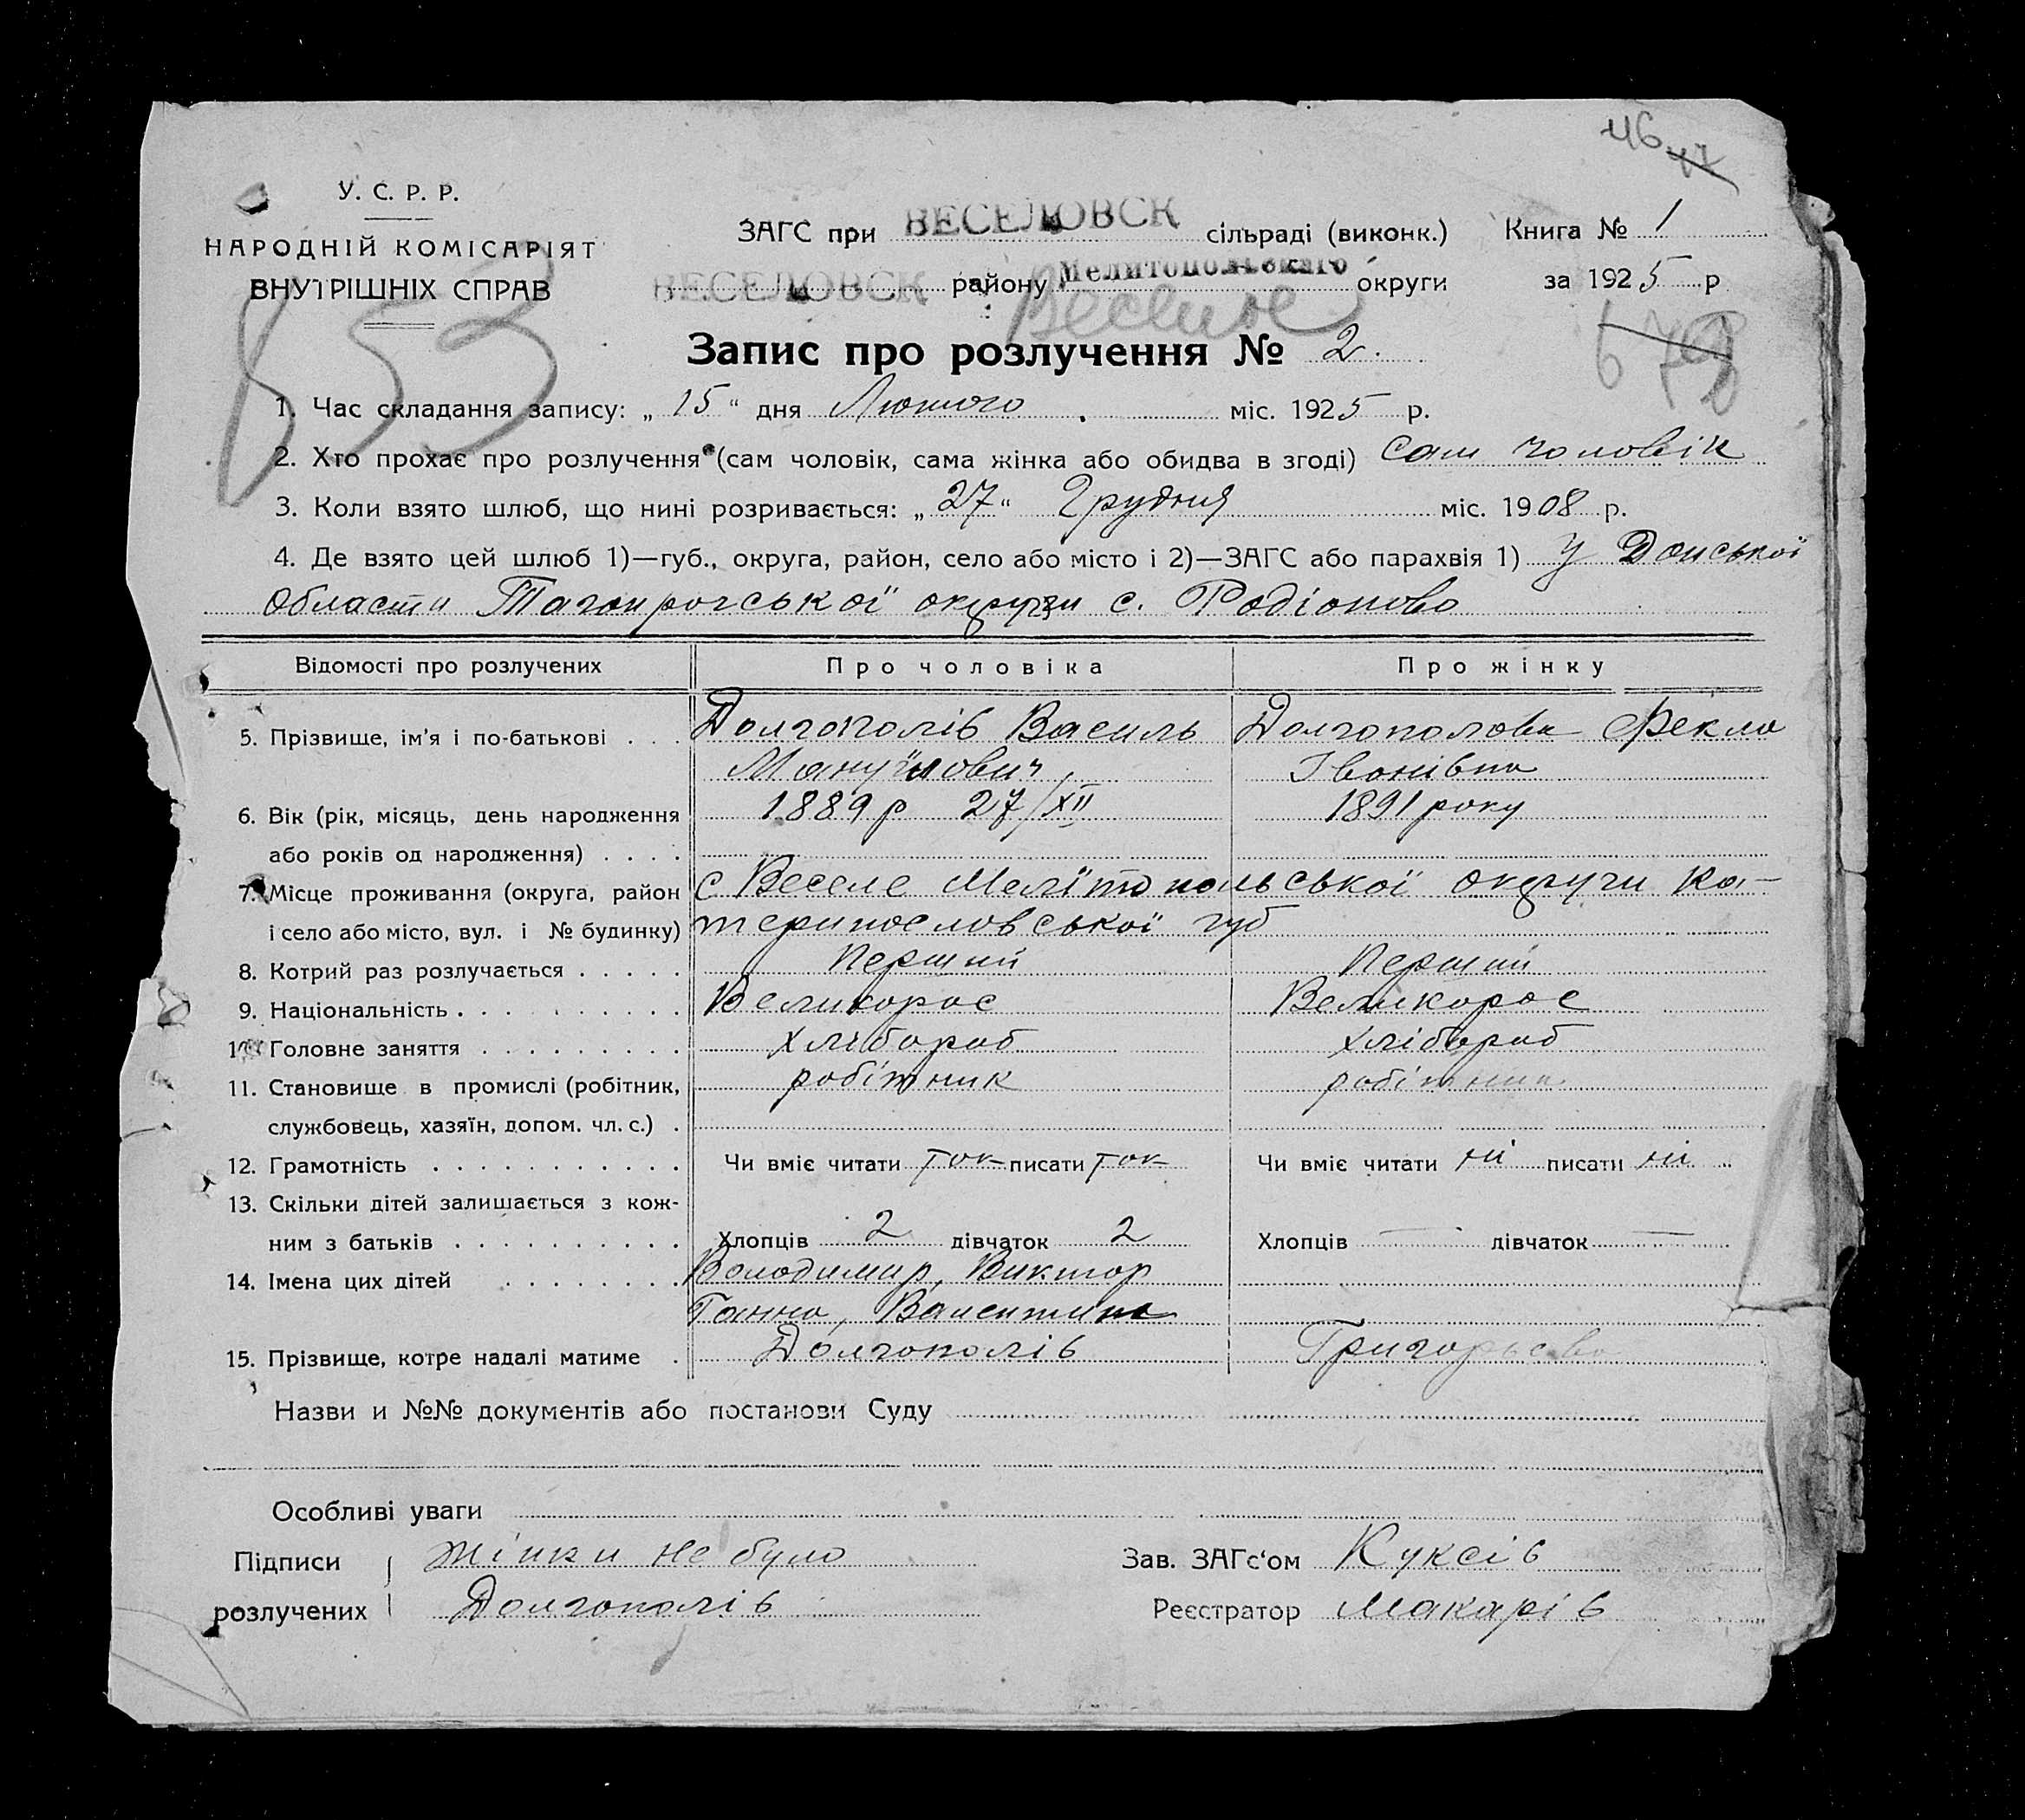 46 47
У. С. Р. Р.
НАРОДНІЙ КОМІСАРІЯТ
ВНУТРІШНІХ СПРАВ
ЗАГС при ВЕСЕЛОВСК сільраді (виконк.) Книга № 1
ВЕСЕЛОВСК району Мелитопольскаго округи за 1925 р
Веселое
Запис про розлучення № 2.
1. Час складання запису: „ 15 “ дня Лютого міс. 1925 р.
2. Хто прохає про розлучення (сам чоловік, сама жінка або обидва в згоді) Сам чоловік
3. Коли взято шлюб, що нині розривається: „ 27 “ Грудня міс. 1908 р.
4. Де взято цей шлюб 1)—губ., округа, район, село або місто і 2)—ЗАГС або парахвія 1) У Донської
Области Таганрогської округи с. Родіоново
Відомості про розлучених Про чоловіка Про жінку
5. Прізвище, ім’я і по-батькові . . . Долгополів Василь Долгополова Фекла
Мануйлович Івонівна
6. Вік (рік, місяць, день народження 1889 р 27/XII 1891 року
або років од народження) . . . .
7. Місце проживання (округа, район с Веселе Меліїтопольської округи Ка-
і село або місто, вул. і № будинку) теринославської губ
8. Котрий раз розлучається . . . . . Перший Перший
9. Національність . . . . . . . . . . Великорос Великорос
10. Головне заняття . . . . . . . . . хлібороб хлібороб
11. Становище в промислі (робітник, робітник робітник
службовець, хазяїн, допом. чл. с.) .
12. Грамотність . . . . . . . . . . . Чи вміє читати так писати так Чи вміє читати ні писати ні
13. Скільки дітей залишається з кож-
ним з батьків . . . . . . . . . . Хлопців 2 дівчаток 2 Хлопців — дівчаток —
14. Імена цих дітей . . . . . . . . Володимир, Виктор
Ганна, Валентина
15. Прізвище, котре надалі матиме . Долгополів Григорьєва
Назви и №№ документів або постанови Суду
Особливі уваги
Підписи Жінки не було Зав. ЗАГс‘ом Куксів
розлучених Долгополів Реєстратор Макарів